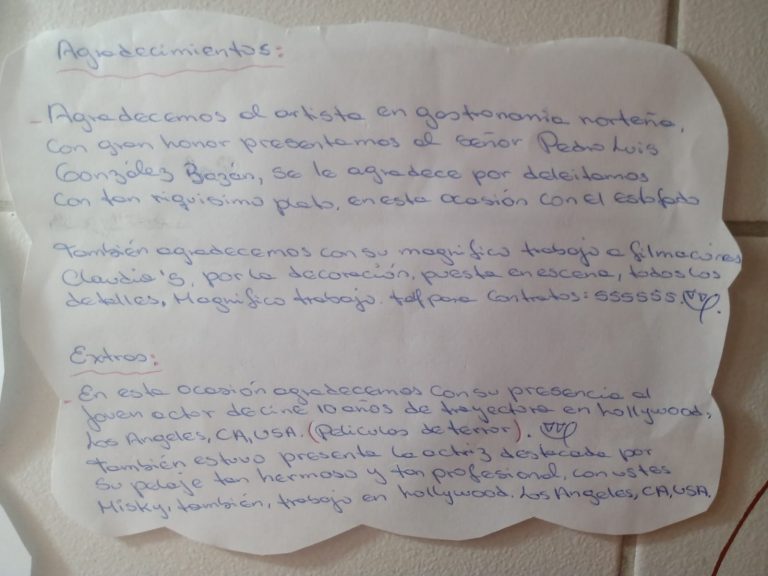 Agradecimientos:
- Agradecemos al artista en gastronomia norteña,
con gran honor presentamos al señor Pedro Luis
González Bazán, se le agradece por deleitarnos
con tan riquisimo plato, en esta ocasión con el estofado
También agradecemos con su magnifico trabajo a filmaciones
Claudia's, por la decoración, puesta en escena, todos los
detalles, Magnifico trabajo. telf para contratos: 555555.
Extras:
- En esta ocasión agradecemos con su presencia al
joven actor de cine 10 años de trayectoria en hollywood,
Los Angeles, CA, USA. (Peliculas de terror).
También estuvo presente la actriz destacada por
su pelaje tan hermoso y tan profesional, con ustes
Misky, también, trabajo en hollywood. Los Angeles, CA, USA.